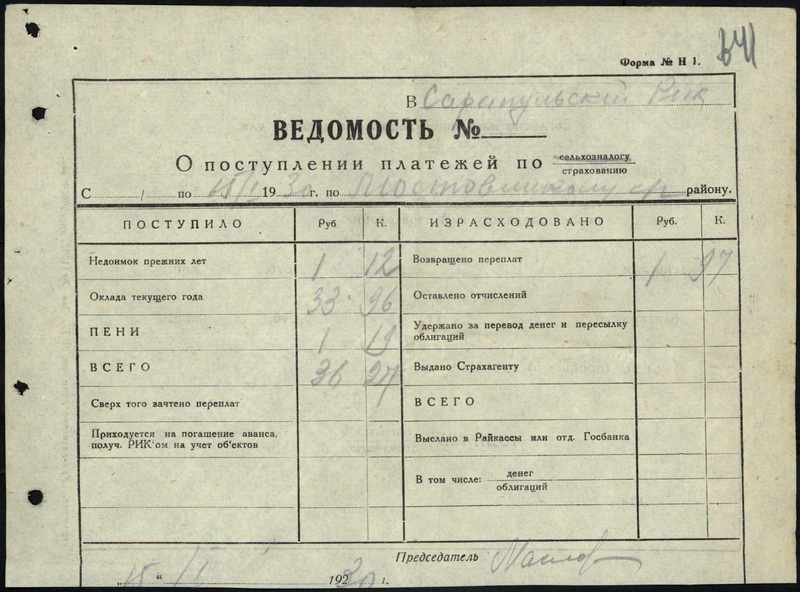 Форма № Н 1.
В Сарапульский Рик
ВЕДОМОСТЬ №
О ПОСТУПЛЕНИИ ПЛАТЕЖЕЙ ПО сельхозналогу
страхованию
С / по 15/I 1930 г. по району.
ПОСТУПИЛО Руб К. ИЗРАСХОДОВАНО Руб. К.
Недоимок прежних лет 1 12 Возвращено переплат 1 97
Оклада текущего года 33 96 Оставлено отчислений
ПЕНИ 1 19 Удержано за перевод денег и пересылку
облигаций
ВСЕГО 36 27 Выдано Страхагенту
Сверх того вачтено переплат ВСЕГО
Приходуется на погашение аванса,
получ. РИК'ом на учет об'ектов Выслано в Райкассы или отд. Госбанка
В том числе: денег
облигаций
Председатель
„15“ I 1930 г.